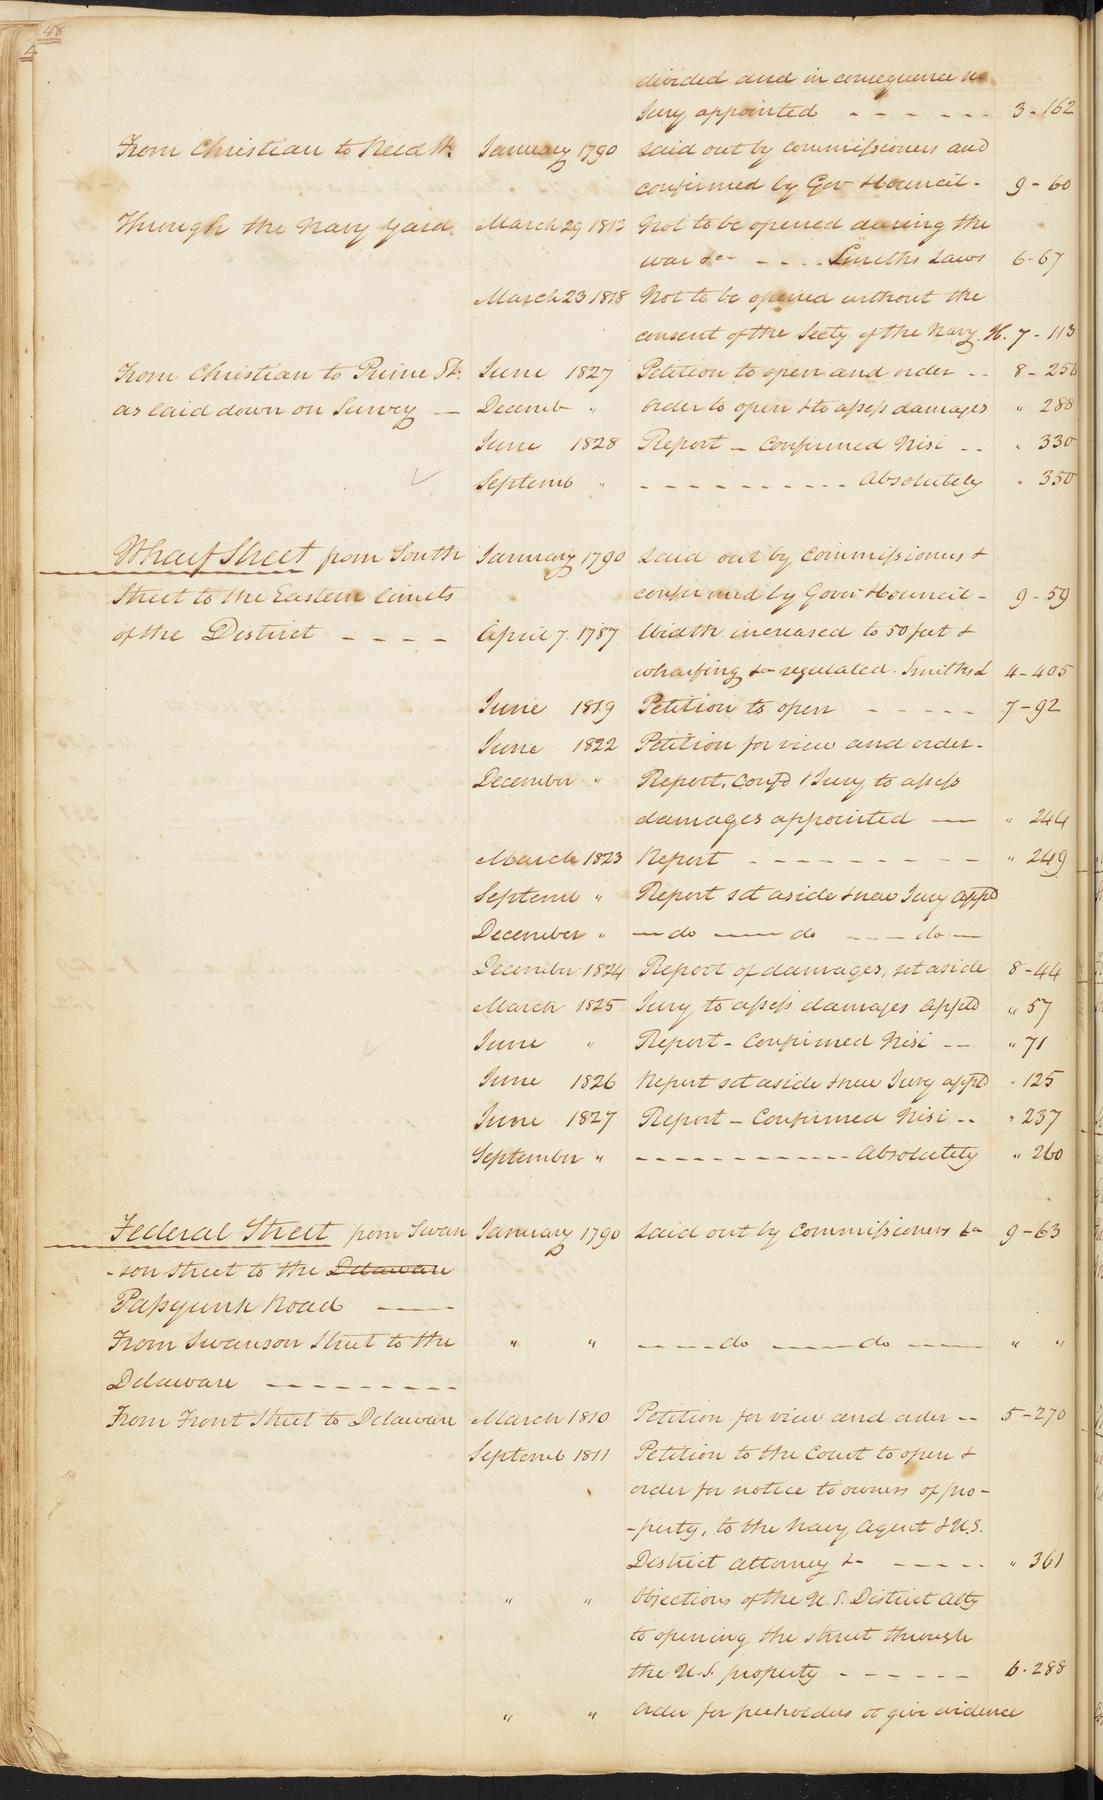 48
4
divided and in consequence no
Jury appointed - - - - - - 3-162
From Christian to Reed St. January 1790 Laid out by Commissioners and
confirmed by Gov & Council - 9-60
Through the Navy Yard. March 29 1813 Not to be opened during the
war &c - - - - Smiths Laws 6-67
March 23 1818 Not to be opened without the
consent of the Secty of the Navy. H. 7-113
From Christian to Prime St. June 1827 Petition to open and order - - 8-256
as laid down on Survey — Decemb " Order to open & to assess damages " 288
June 1828 Report - Confirmed Nisi - - " 330
Septemb " - - - - - - - - - - Absolutely " 350
Wharf Street from South January 1790 Laid out by Commissioners &
Street to the Eastern limits confirmed by Govr & Council - 9-59
of the District - - - - April 7. 1787 Width increased to 50 feet &
wharfing &c regulated. Smiths L 4-405
June 1819 Petition to open - - - - - 7-92
June 1822 Petition for view and order -
December " Report. Conf'd & Jury to assess
damages appointed — " 244
March 1823 Report - - - - - - - - - " 249
Septemb " Report set aside & new Jury app'd
December " — do — do - - - do —
December 1824 Report of damages, set aside 8-44
March 1825 Jury to assess damages app'td " 57
June " Report - Confirmed Nisi - - " 71
June 1826 Report set aside & new Jury app'td " 125
June 1827 Report - Confirmed Nisi - - " 237
September " - - - - - - - - - - - - Absolutely " 260
Federal Street from Swan January 1790 Laid out by Commissioners &c 9-63
-son Street to the Delaware
Passyunk Road —
From Swanson Street to the " " - - - - do — do — " "
Delaware - - - - - - - - -
From Front Street to Delaware March 1810 Petition for view and order - - 5-270
Septemb 1811 Petition to the Court to open &
order for notice to owners of pro-
-perty, to the Navy Agent & U.S.
District Attorney &c - - - - - " 361
" " Objections of the U.S. District Atty
to opening the street through
the U.S. property - - - - - - 6-288
" " Order for freeholders to give evidence